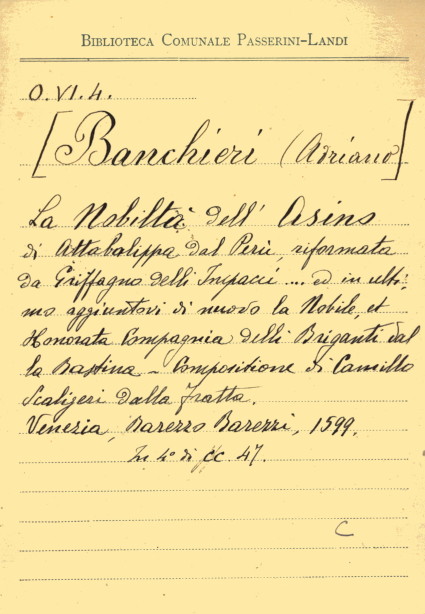 BIBLIOTECA COMUNALE PASSERINI-LANDI
O.VI.4.
[Banchieri (Adriano)]
La Nobiltà dell' Asino
di Attabalippa dal Perù, riformata
da Griffagno delli Impacci .... ed in ulti-
mo aggiuntovi di nuovo la Nobile, et
Honorata Compagnia delli Briganti dal
la Bastina - Compositione di Camillo
Scaligeri dalla Fratta.
Venezia, Barezzo Barezzi, 1599.
In 4° di cc. 47.
C